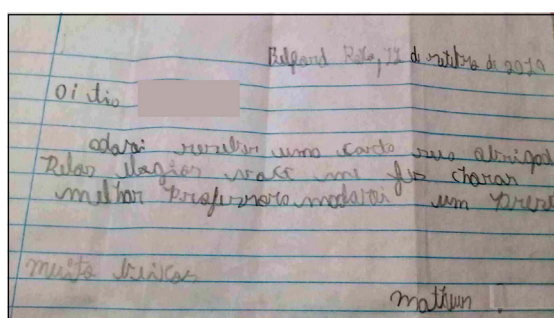 Belford Roxo, 12 de setebro de 2019
oi tio
adorei reseber uma carta sua obrigad
Pelos elogios voce me fes chorar
melhor Professora madarei um Prese
muito beixos